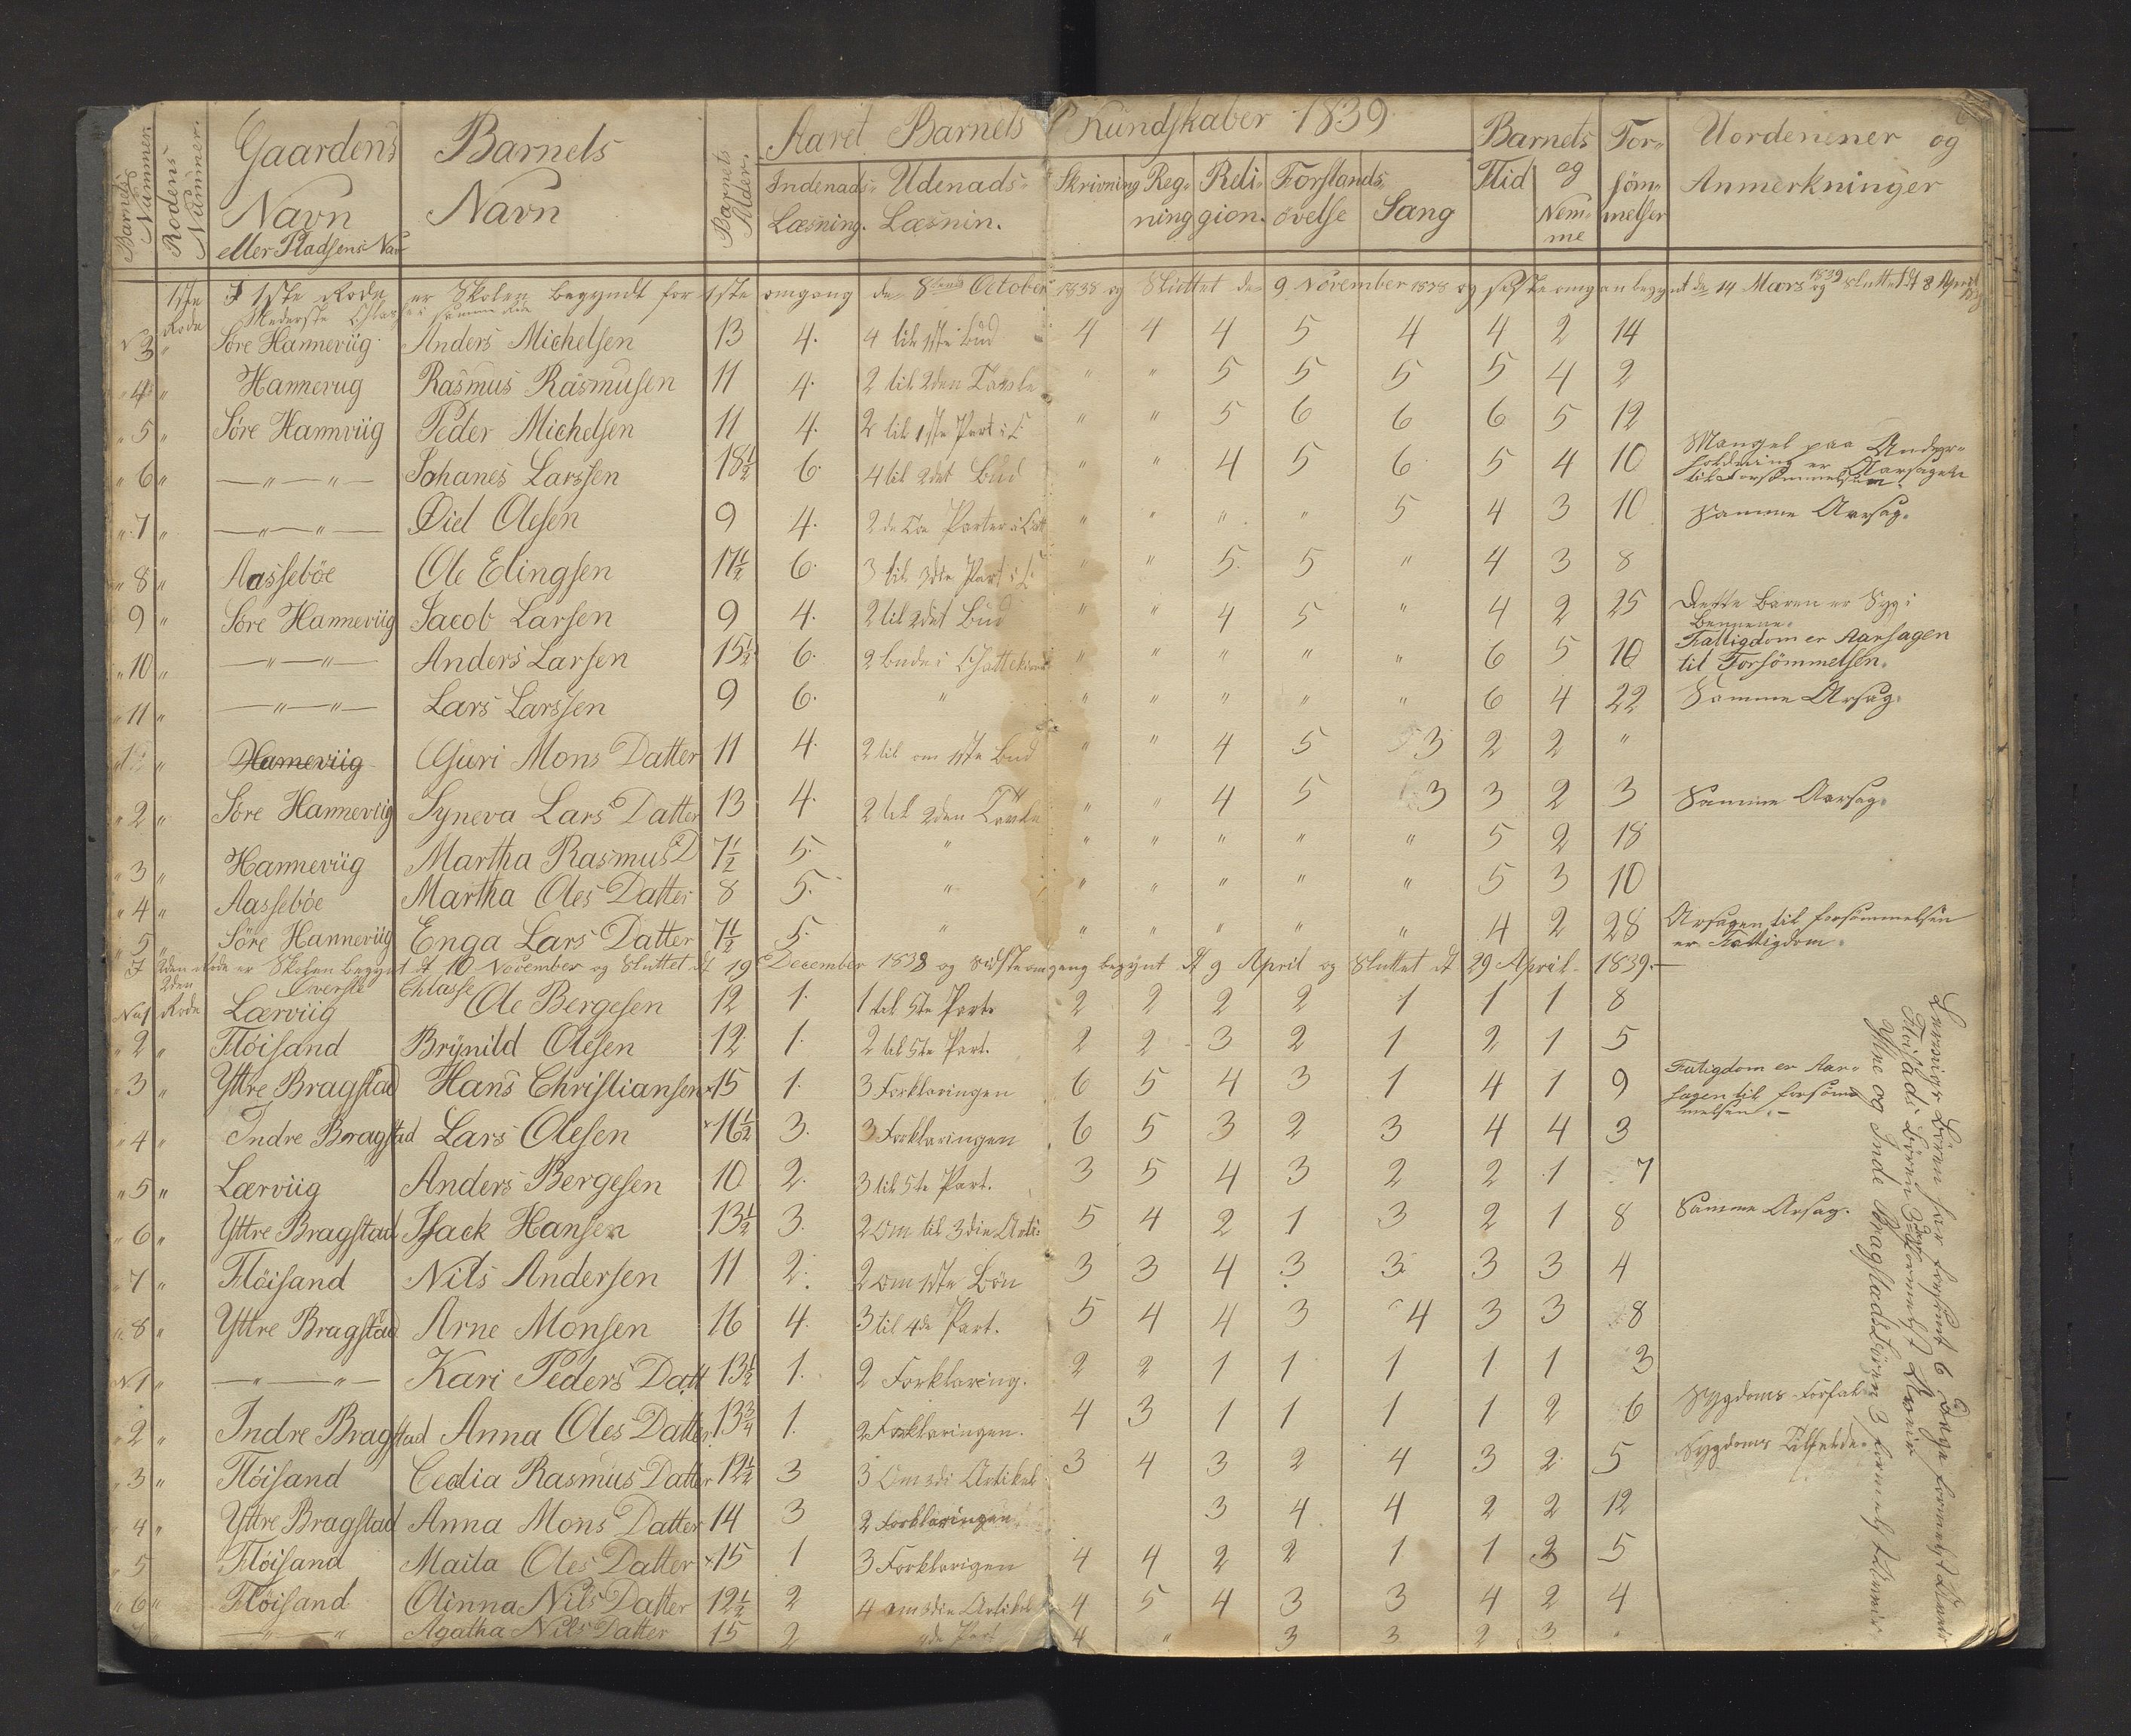 Barnets Nummer
Rodens Nummer.
Gaardens Navn eller Pladsens Nav
Barnets Navn
Barnets Alder.
Aaret Barnets Kundskaber 1839
Indenads- Læsning.
Udenads- Læsnin.
Skrivning
Reg- ning
Reli- gion.
Forstands- övelse
Sang
Barnets Flid og Nem- me
For- söm- melser
Uordenener og Anmerkninger
1ste Rode
I 1ste Rode er Skolen begyndt for 1ste omgang den 8 October 1838 og Sluttet den 9 November 1838 og begynt den 14 Mars 1839 og Sluttet dt 8 April
Nederste Classe i samme Rode
3 " Søre Hanneviig Anders Michelsen 13 4. 4 til 1ste Bud 4 4 4 5 4 4 2 14
" 4 " Hannevug Rasmus Rasmusen 11 4. 2 til 2den Tavle " " 5 5 5 5 4 2
" 5 " Söre Hannviig Peder Michelsen 11 4. 2 til 1ste Part i C " " 5 6 6 6 5 12
" 6 " — " — " — Johanes Larssen 18½ 6. 4 til 2det Bud " " 4 5 6 5 4 10 Mangel paa Underholdning er Aarsagen til Forsömmelsen.
" 7 " — " — " — Oiel Olesen 9 4. 2 de Toe Parter i " " " " 5 4 3 10 Samme Aarsag.
" 8 " Aasseböe Ole Elingsen 17½ 6. 3 til 3die Part i C " " 5. 5 " 4 3 8
9 " Söre Hanneviig Jacob Larsen 9 4. 2 til 2det Bud " " 4 5 " 4 2 25 Dette Baren er Syg i Benene.
" 10 " — " — " — Anders Larsen 15½ 6. 2 bude i Chattekismi " " " " " 6 5 10 Fattigdom er Aarsagen til Forsömmelsen.
" 11 " — " — " — Lars Larssen 9 6. " " " " " " 6 4 22 Samme Arsag.
" Hanneviig Guri Mons Datter 11 4. 2 til om 1ste Bud " " 4 5 3 2 2 "
" 2 " Söre Hanneviig Syneva Lars Datter 13 4. 2 til 2den Tavle " " 4 5 3 3 2 3 Samme Aarsag.
" 3 " Hanneviig Martha Rasmus D 7½ 5. " " " " " " 5 2 18
" 4 " Aasseböe Martha Oles Datter 8 5. " " " " " " 5 3 10
" 5 " Söre Hanneviig Enga Lars Datter 7½ 5. " " " " " " 4 2 28 Arsagen til forsömmelsen er Fattigdom.
I 2den Rode er Skolen begynt dt 10 November og Sluttet dt 19 December 1838 og Sidste omgang begynt dt 9 April og Sluttet dt 29 April 1839.
2den Rode Överste Chlasse
No 1 Lærviig Ole Bergesen 12 1. 1 til 5te Parte 2 2 2 2 1 1 1 8
" 2 " Flöisand Brÿnild Olesen 12 1. 2 til 5te Part. 2 2 3 2 1 2 1 5
" 3 " Yttre Bragstad Hans Christiansen × 15 1. 3 Forklaringen 6 5 4 3 1 4 1 9 Fatigdom er Aarsagen til forsömmelsen.
" 4 " Indre Bragstad Lars Olesen × 16½ 3. 3 Forklaringen 6 5 3 2 3 4 4 3
" 5 " Lærviig Anders Bergesen 10 2. 3 til 5te Part. 3 5 4 3 2 2 1 7
" 6 " Yttre Bragstad Isack Hansen 13½ 3. 2 Om til 3die Arti- 5 4 2 1 3 2 1 8 Samme Arsag.
" 7 " Flöisand Nils Andersen 11 2. 2 om 1ste Bön 3 3 4 3 3 3 3 4
" 8 " Yttre Bragstad Arne Monsen 16 4. 3 til 4de Part. 5 4 4 3 4 3 3 8
N 1 " — " — " — Kari Peders Datt 13½ 1. 2 Forklaring. 2 2 1 1 1 1 1 3
" 2 " Indre Bragstad Anna Oles Datter 13¾ 1. 2 Forklaringen. 4 3 1 1 1 1 2 6 Sygdoms Forfal
" 3 " Flöisand Cedia Rasmus Datter 12½ 3 3 Om 3di Artikel 3 4 3 2 4 3 2 5 Sygdoms Tilfelde.
" 4 " Yttre Bragstad Anna Mons Datter 14 3 2 Forklaringen 3 4 4 2 2 12
" 5 Flöisand Maila Oles Datter × 15 1 3 Forklarigen 4 4 2 2 1 1 3 5
" 6 " Flöisand Olinna Nils Datter 12½ 2 4 om 3die Artikel 4 5 4 3 3 4 2 4
— " — " Agatha Nils Datter 15 2 4de Part 4 " 3 3 2 3
Lervigs Bören har forsömt 6 Dage
Flöisads Bören
Yttre og Indre Bragstads Bören 3